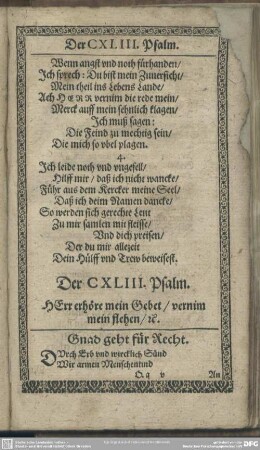 Der CXLIII. Psalm.
Wenn angst vnd noth fürhanden /
Ich sprech: Du bist mein Zuuersicht /
Mein theil ins Lebens Lande /
Ach HERR vernim die rede mein /
Merck auff mein sehnlich klagen /
Ich muß sagen:
Die Feind zu mechtig sein /
Die mich so vbel plagen.
4.
Ich leide noth vnd vngefell /
Hilff mir / daß ich nicht wancke /
Führ aus dem Kercker meine Seel /
Daß ich deim Namen dancke /
So werden sich gerechte Leut
Zu mir samlen mit fleisse /
Vnd dich preisen /
Der du mir allezeit
Dein Hülff vnd Trew beweisest.
Der CXLIII. Psalm.
HErr erhöre mein Gebet / vernim
mein flehen / ꝛc.
Gnad geht für Recht.
DVrch Erb vnd wircklich Sünd
Wir armen Menschenkind
Q q v An
DFG